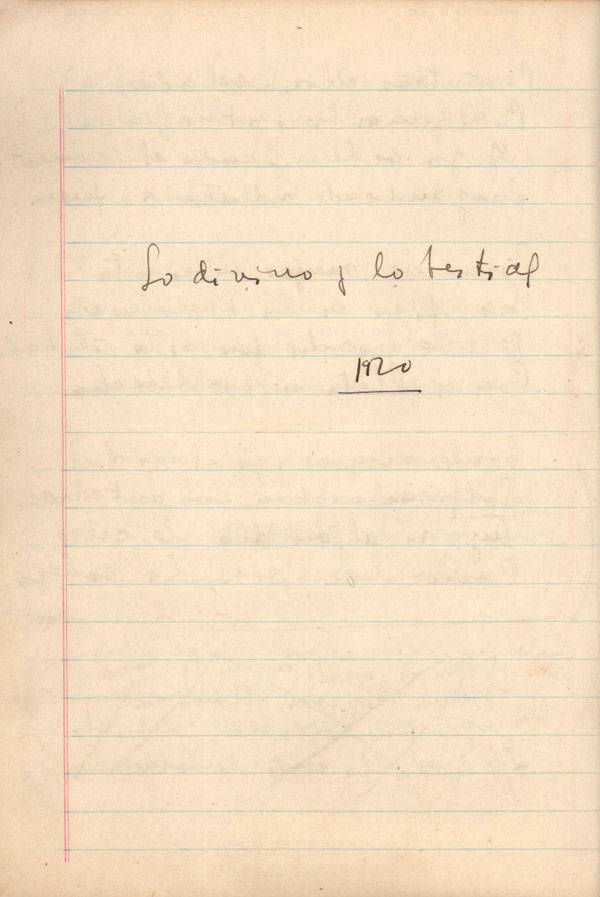 Lo divino y lo bestial
1920